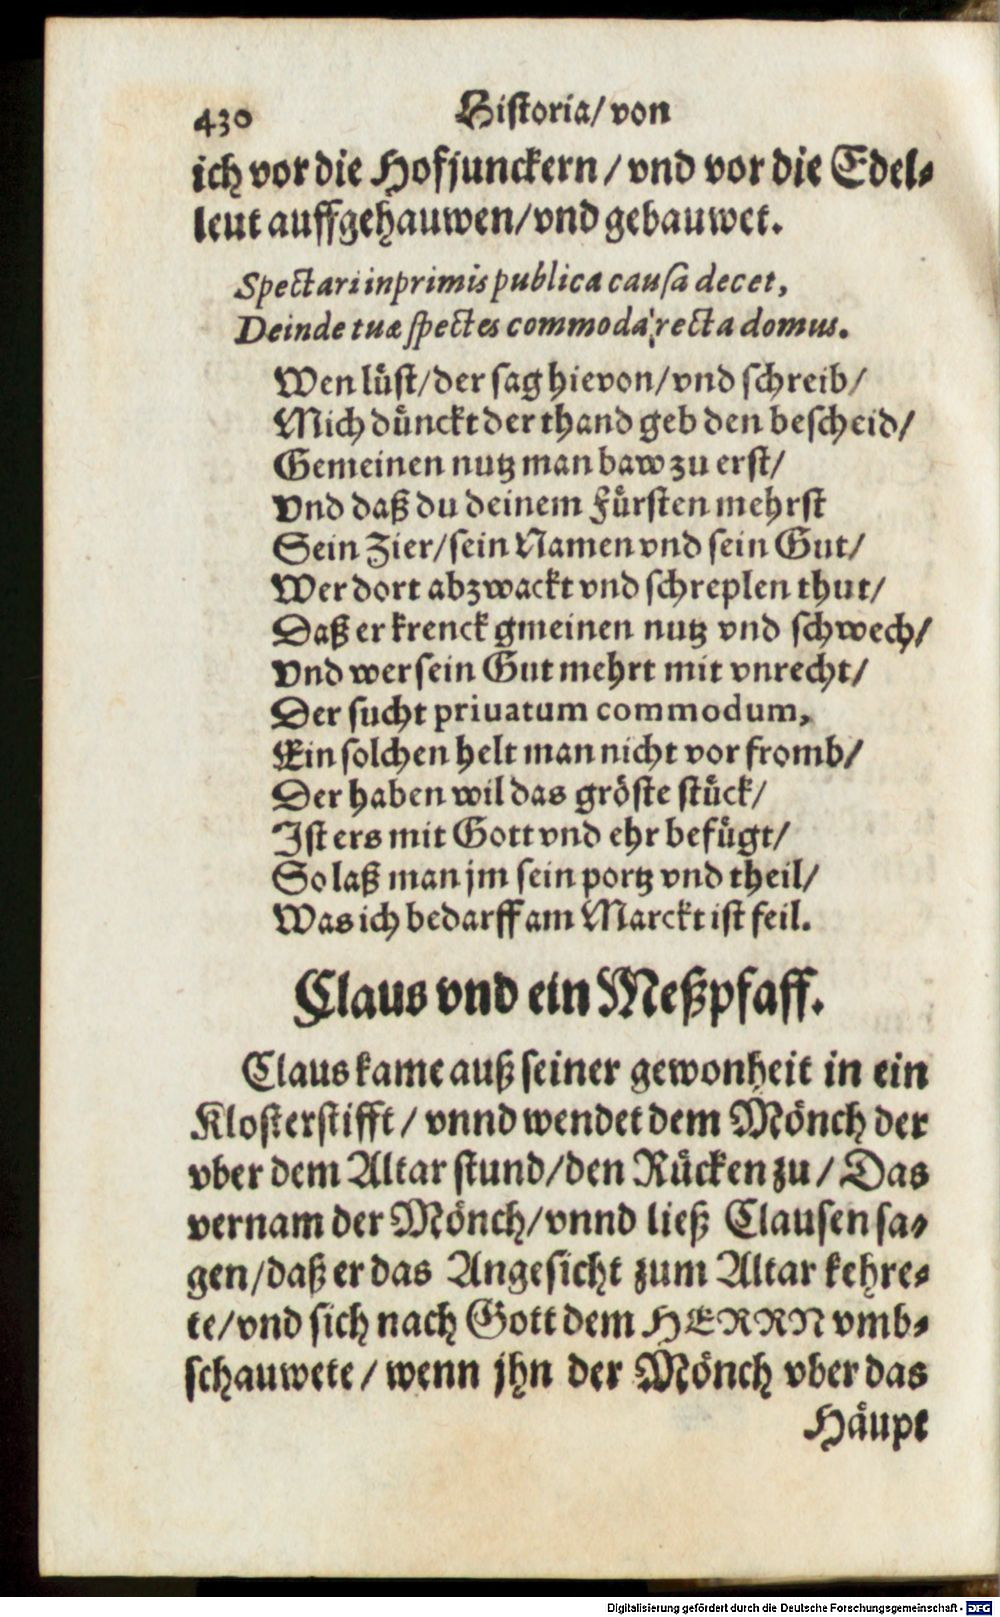 430 Historia/ von
ich vor die Hofjunckern / vnd vor die Edel-
leut auffgehauwen/vnd gebauwet.
Spectari inprimis publica causa decet,
Deinde tuæ spectes commoda recta domus.
Wen lüst/der sag hievon/vnd schreib/
Mich dünckt der thand geb den bescheid/
Gemeinen nutz man baw zu erst/
Vnd daß du deinem Fürsten mehrst
Sein Zier/sein Namen vnd sein Gut/
Wer dort abzwackt vnd schreplen thut/
Daß er krenck gmeinen nutz vnd schwech/
Vnd wer sein Gut mehrt mit vnrecht/
Der sucht priuatum commodum,
Ein solchen helt man nicht vor fromb/
Der haben wil das gröste stück/
Ist ers mit Gott vnd ehr befügt/
So laß man jm sein portz vnd theil/
Was ich bedarff am Marckt ist feil.
Claus vnd ein Meßpfaff.
Claus kame auß seiner gewonheit in ein
Klosterstifft / vnnd wendet dem Mönch der
vber dem Altar stund/den Rücken zu / Das
vernam der Mönch/vnnd ließ Clausen sa-
gen/daß er das Angesicht zum Altar kehre-
te/vnd sich nach Gott dem HERRN vmb-
schauwete / wenn jhn der Mönch vber das
Häupt
Digitalisierung gefördert durch die Deutsche Forschungsgemeinschaft - DFG